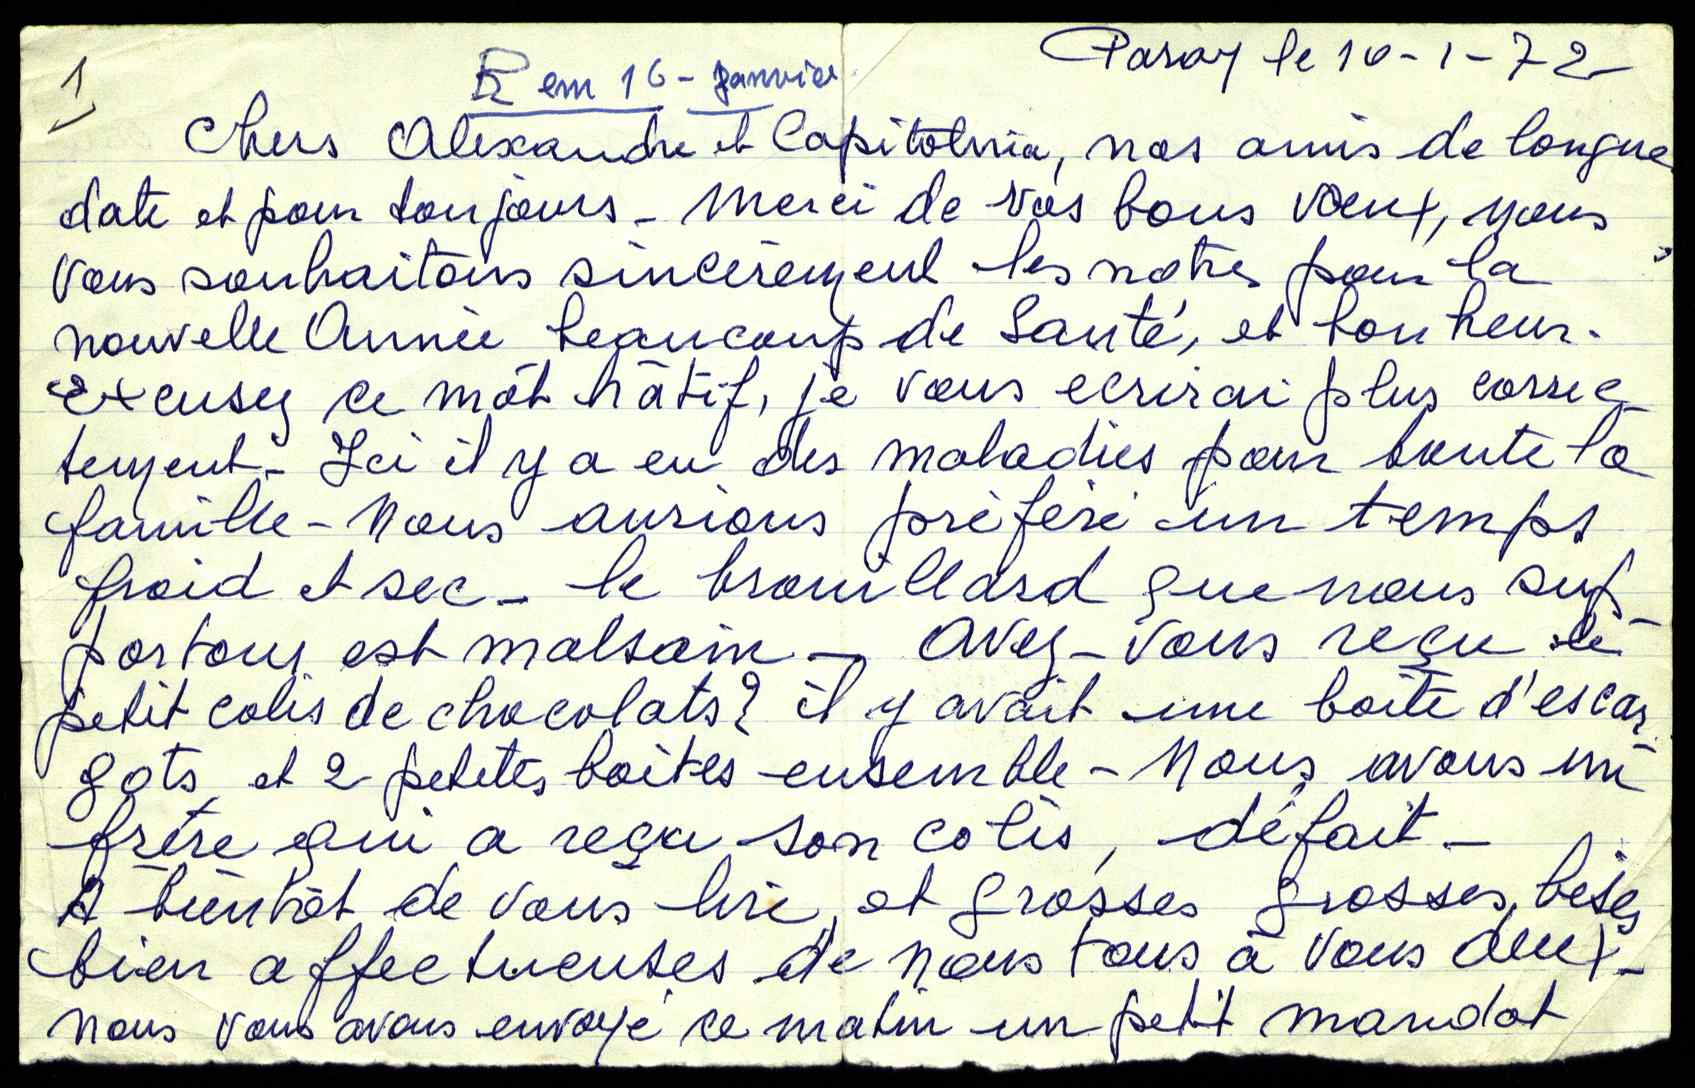 1
Paray le 10-1-72
R em 16 - Janvier
Chers Alexandre et Capitolnia, nos amis de longue
date et pour toujours - Merci de vos bons vœux, nous
vous souhaitons sincèrement les notres pour la
nouvelle Année beaucoup de Santé, et bonheur.
Excusez ce môt hâtif, je vous ecrirai plus correc
tement - Ici il y a eu des maladies pour toute la
famille - Nous aurions préféré un temps
froid et sec - le brouillard que nous sup
portons est malsain - Avez-vous reçu le
petit colis de chocolats? il y avait une boite d'escar
gots et 2 petites boites ensemble - Nous avons un
frère qui a reçu son colis, défait -
A bientôt de vous lire, et grosses grosses bises
bien affectueuses de nous tous à vous deux -
nous vous avons envoyé ce matin un petit mandat